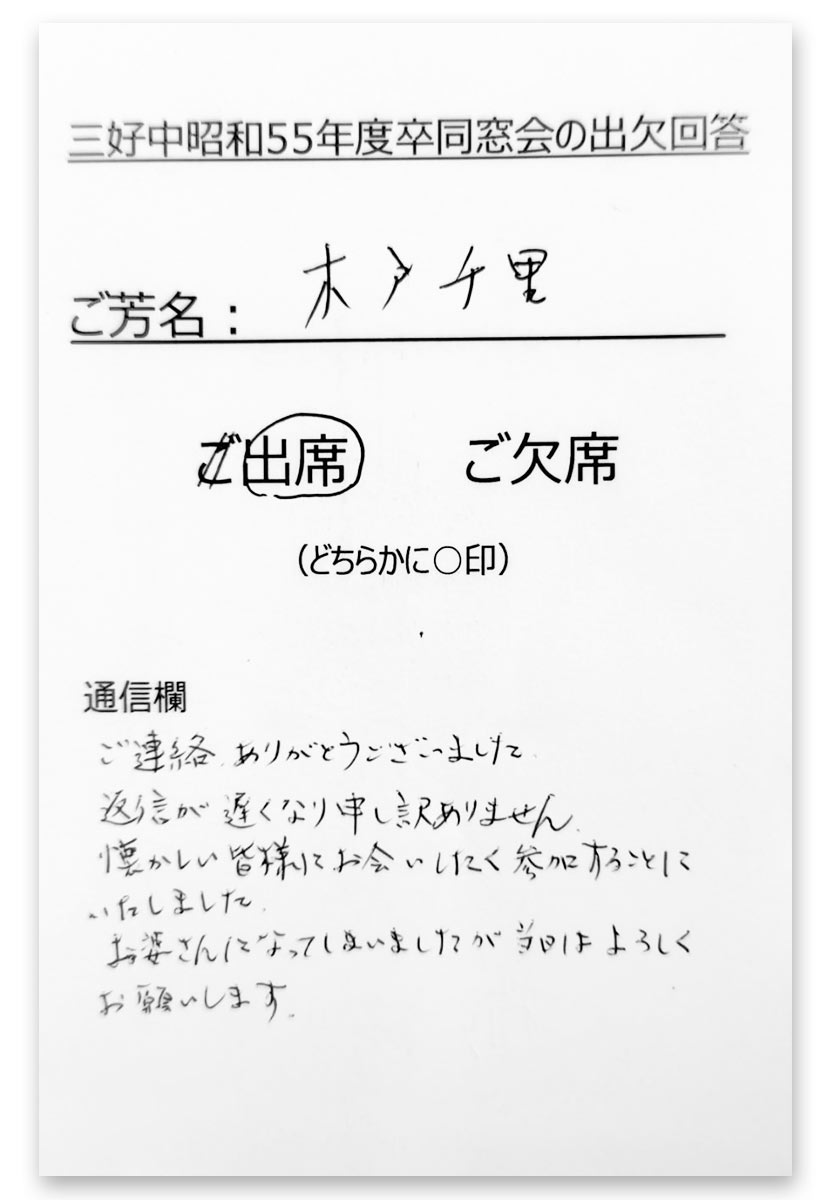 三好中昭和55年度卒同窓会の出欠回答
ご芳名： 木戸千里
ご出席 ご欠席
（どちらかに○印）
通信欄
ご連絡、ありがとうございました
返信が遅くなり申し訳ありません。
懐かしい皆様にお会いしたく参加することに
いたしました。
お婆さんになってしまいましたが当日はよろしく
お願いします。